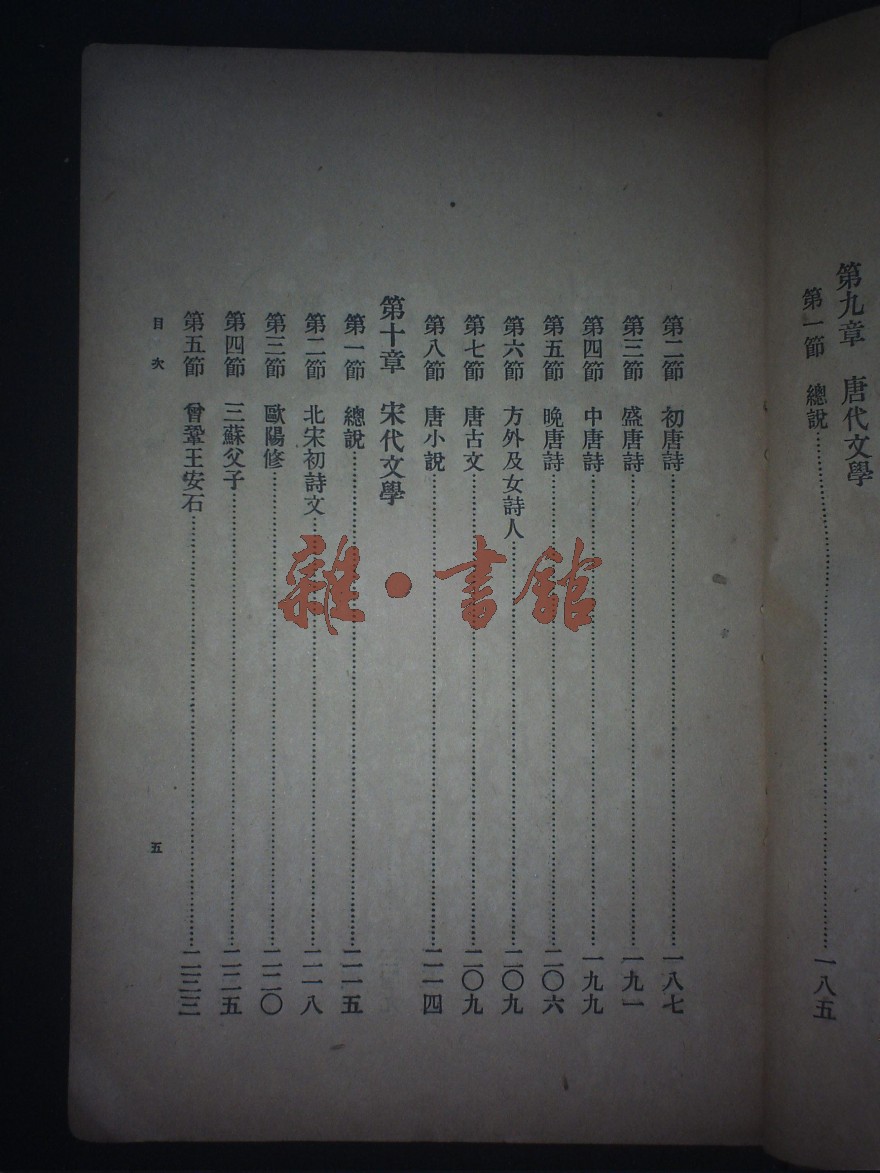 第九章　唐代文學
第一節　總說…………一八五
第二節　初唐詩…………一八七
第三節　盛唐詩…………一九一
第四節　中唐詩…………一九九
第五節　晚唐詩…………二〇六
第六節　方外及女詩人…………二〇九
第七節　唐古文…………二〇九
第八節　唐小說…………二一四
第十章　宋代文學
第一節　總說…………二一五
第二節　北宋初詩文…………二一八
第三節　歐陽修…………二二〇
第四節　三蘇父子…………二二五
第五節　曾鞏王安石…………二三三
目次　五
雜·書館